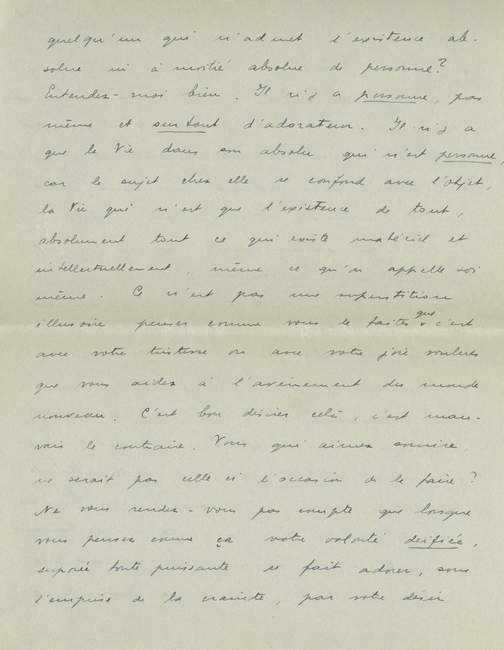 quelqu'un qui n'admet l'existence ab-
solue ni à moitié absolue de personne?
Entendez-moi bien. Il n'y a personne, pas
même et surtout d'adorateur. Il n'y a
que la Vie dans son absolu qui n'est personne,
car le sujet chez elle se confond avec l'objet,
la Vie qui n'est que l'existence de tout,
absolument tout ce qui existe matériel et
intellectuellement, même ce qu'on appelle soi
même. Ce n'est pas une superstition
illusoire penser comme vous le faites que c'est
avec votre tristesse ou avec votre joie voulues
que vous aidez à l'avènement du monde
nouveau. C'est bon désirer celà, c'est mau-
vais le contraire. Vous qui aimez sourire
ne serait pas celle ci l'occasion de le faire?
Ne vous rendez-vous pas compte que lorsque
vous pensez comme ça votre volonté deifiée,
supposée toute puissante se fait adorer, sous
l'emprise de la crainte, par votre désir